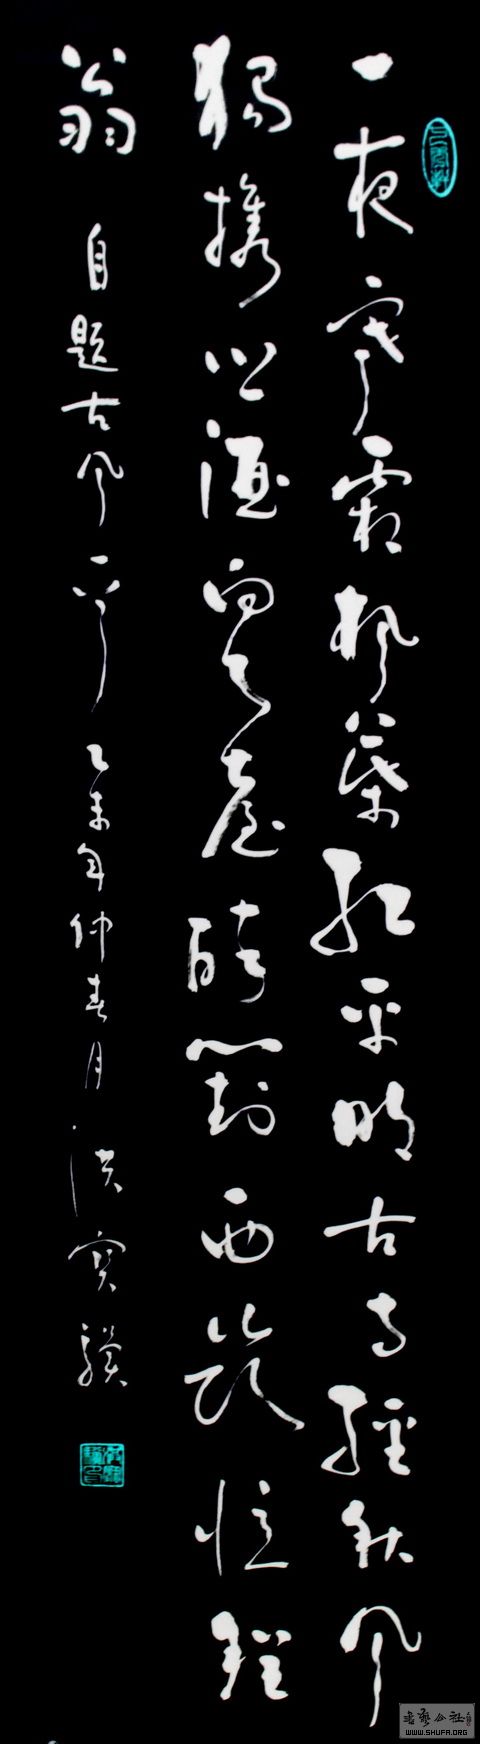 一夜寒霜楓葉紅平明古寺經秋風
獨攜酒向臺醉對西憶
翁 自題古風一首 乙未年仲春月 洪寶
書藝公社
WWW.SHUFA.ORG